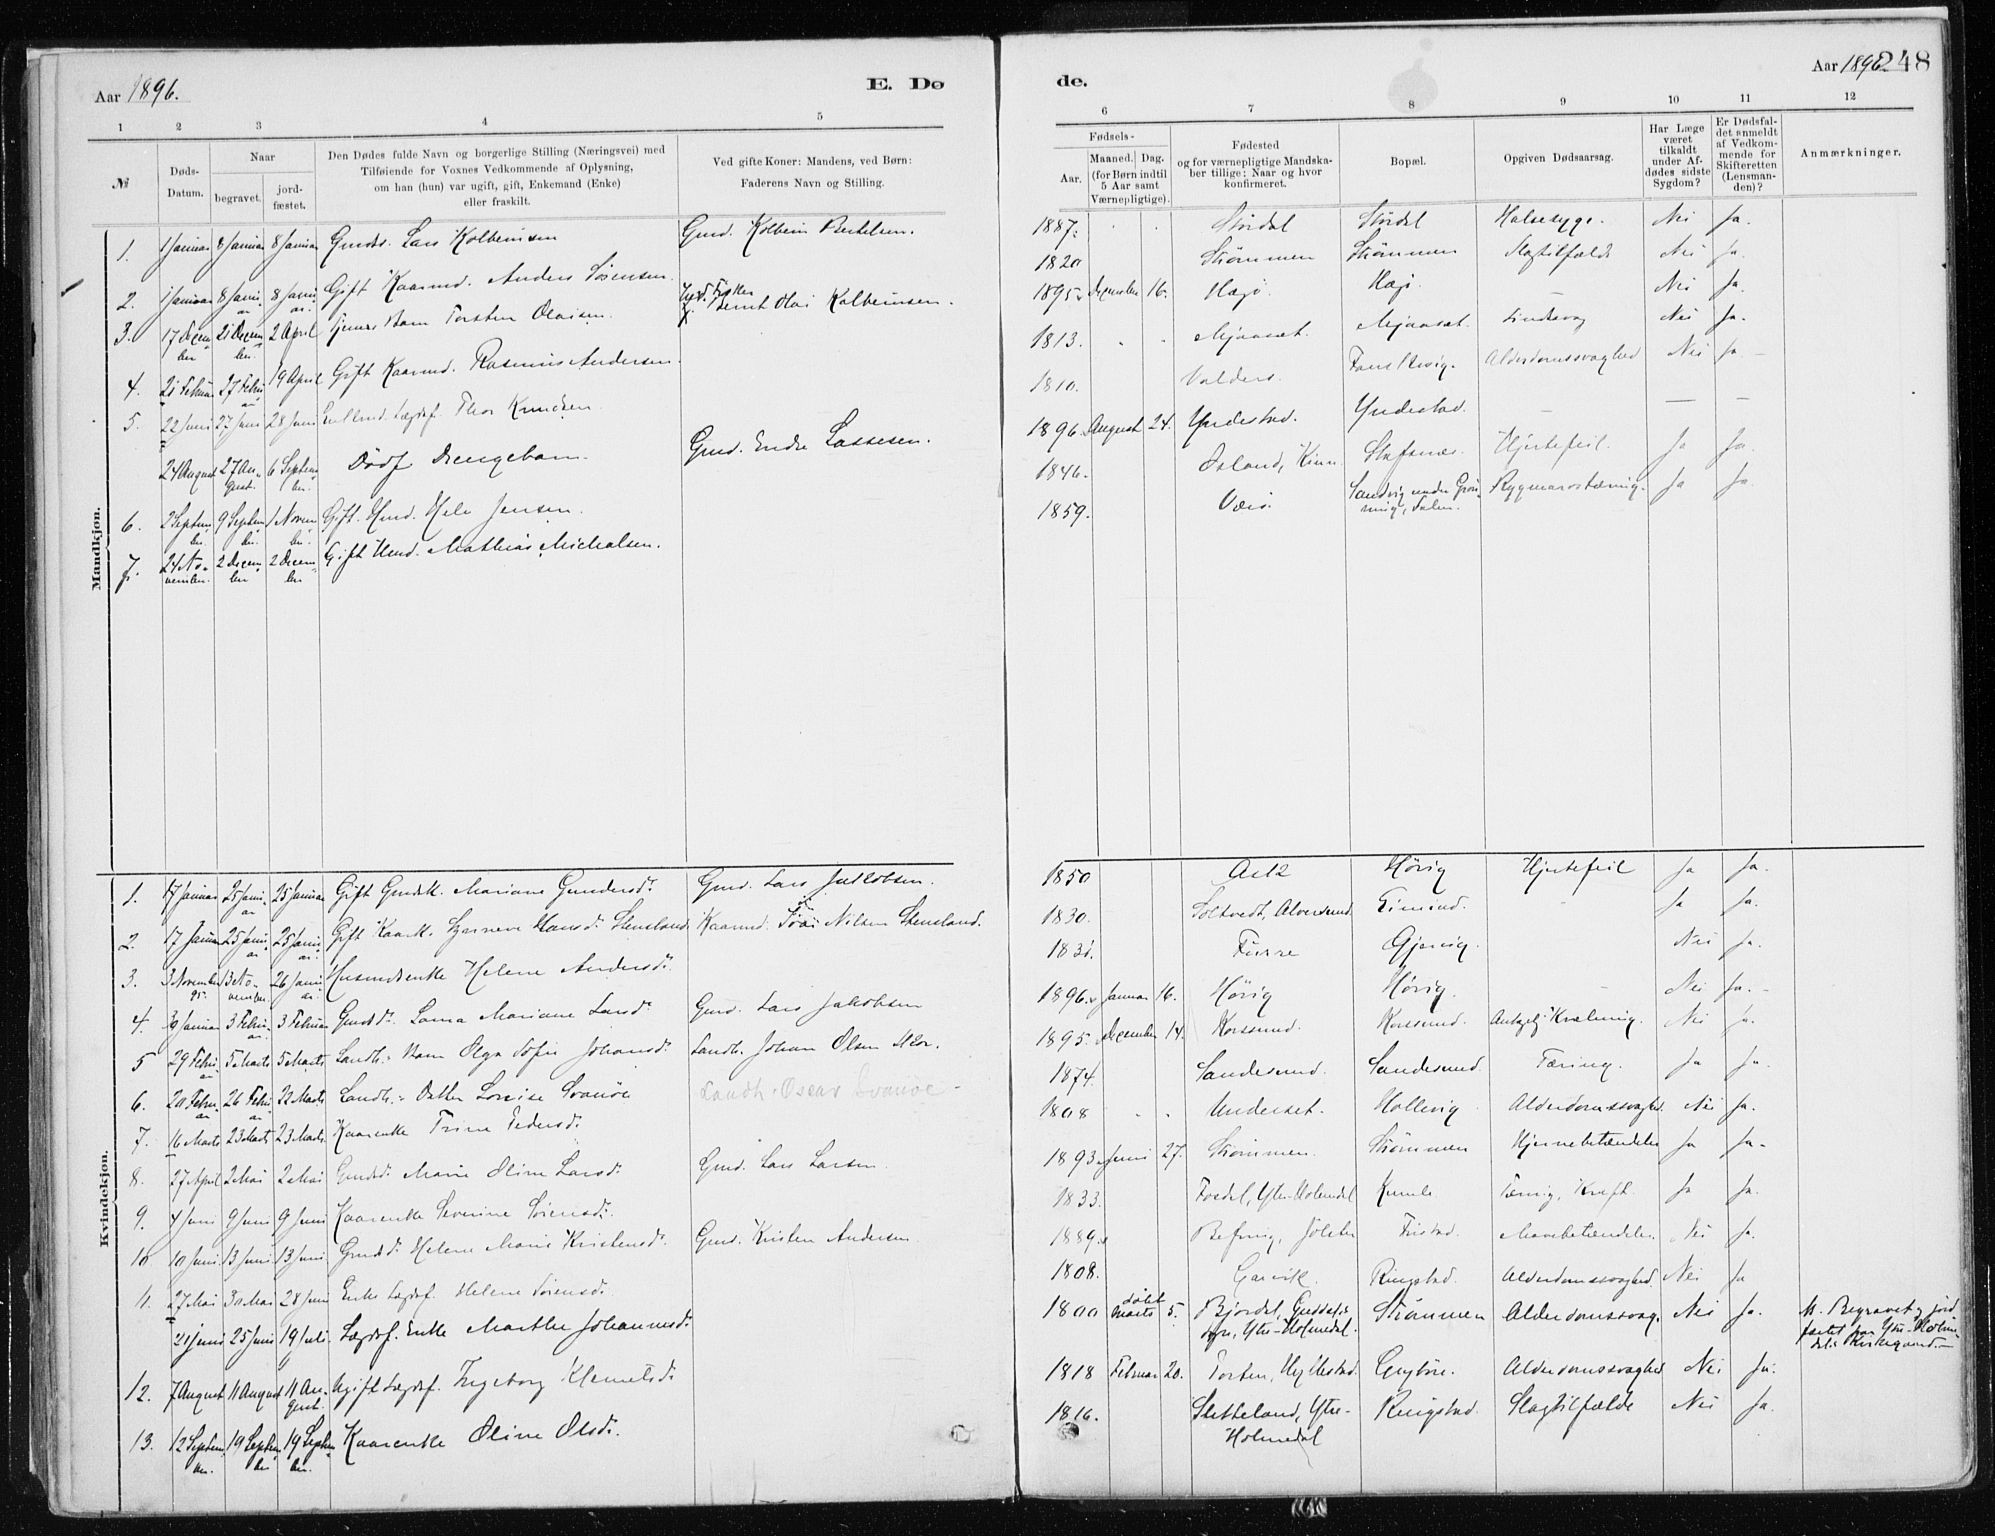 Aar 1896.
E. Dø
de.
Aar 1896.
248
1 2 3 4 5
6 7 8 9 10 11 12
№
Døds-
Datum.
Naar
begravet.
jord-
fæstet.
Den Dødes fulde Navn og borgerlige Stilling (Næringsvei) med
Tilføiende for Voxnes Vedkommende af Oplysning,
om han (hun) var ugift, gift, Enkemand (Enke)
eller fraskilt.
Ved gifte Koner: Mandens, ved Børn:
Faderens Navn og Stilling.
Fødsels-
Aar.
Maaned. Dag.
(for Børn indtil
5 Aar samt
Værnepligtige).
Fødested
og for værnepligtige Mandska-
ber tillige: Naar og hvor
konfirmeret.
Bopæl.
Opgiven Dødsaarsag.
Har Læge
været
tilkaldt
under Af-
dødes sidste
Sygdom?
Er Dødsfal-
det anmeldt
af Vedkom-
mende for
Skifteretten
(Lensman-
den)?
Anmærkninger.
Mandkjøn.
1. 1 Januar 8 Januar 8 Januar Gmds. Lars Kolbeinsen Gmd. Kolbein Bertelsen. 1887. Stördal Stördal Halsesyge. Nei Ja.
2. 1 Januar 8 Janu-ar 8 Janu-ar. Gift Kaarmd. Anders Sörensen. 1820 Strömmen Strömmen Slagtilfælde Nei Ja.
3. 17 Decem-ber 21 Decem-ber. 2 April Barn Torsten Olaisen. Fisker Bernt Olai Kolbeinsen. 1895. December 16. Hægö. Hægö. Nei Ja.
4. 21 Februar 27 Febru-ar 19 April Gift Kaarmd. Rasmus Andersen. 1813. Mjaaset. Mjaaset. Nei Ja.
5. 22 Juni 27 Juni 28 Juni Lægdsl. Thor Knudsen. 1810. Valders. Alderdomssvaghed Nei Ja
24 August 27 Au-gust. 6 Septem-ber. Dödf. Drengebarn. Gmd. Endre Lassesen. 1896. August 24. Yndestad. Yndestad. — — —
6. 2 Septem-ber. 9 Septem-ber. 1 Novem-ber. Gift. Hmd. Hele Jensen. 1846. Osland, Kinn. Stafsnæs. Hjertefeil. Ja Ja.
7. 24 No-vember. 2 Decem-ber 2 Decem-ber Gift Hmd. Mathias Michalsen. 1859. Værö. Sandvig under Ja Ja.
Kvindekjøn.
1. 17 Januar 25 Janu-ar 25 Januar Gift Gmdsk. Mariane Gundersd. Gmd. Lars Jakobsen. 1850 Hövig Hjertefeil Ja Ja.
2. 17 Januar 25 Janu-ar 25 Janu-ar. Gift Kaark. Hansd. Stensland. Kaarmd. Nilsen Stensland. 1830. Alversund. Eimind. Ja Ja.
3. 3 November 95. 13 No-vember. 26 Janu-ar. Husmdsenke Helene Andersd. Furre Gjervig. Nei Ja.
4. 30 Januar 3 Febru-ar. 3 Februar Gmdsd. Laura Mariane Larsd. Gmd. Lars Jakobsen 1896. Januar 16. Hövig Hövig. Nei Ja.
5 29 Febru-ar 5 Marts 5 Marts Barn Olga Sofie Johansd. Landh. Johan Olsen 1895. December 14. Korssund. Korssund. Nei Ja.
6. 20 Febru-ar 26 Febru-ar. 22 Marts Landh. Datter Lovise Svanöe Landh. Oscar Svanöe 1874. Sandesund. Sandesund. Tæring. Ja Ja.
7. 16 Marts 23 Marts 23 Marts. Kaarenke Trine Pedersd. 1808 Underset. Hollevig. Alderdomssvaghed. Nei Ja.
8. 27 April 2 Mai 2 Mai Gmdsd. Marie Oline Larsd. Gmd. Lars Larsen. 1893. Juni 27. Strömmen. Strömmen Hjernebetændelse Ja Ja.
9. 4 Juni 9 Juni 9 Juni Kaarenke Severine Sörensd. 1833. Fosdal, Ytre-Holmedal Kumle Tæring, Kræft. Ja Ja.
10 10 Juni 13 Juni 13 Juni. Gmdsd. Helene Marie Kristensd. Gmd. Kristen Andersen 1889. Befring, Jölster Fristad. Mavebetændelse. Nei Ja.
11. 27 Mai 30 Mai 28 Juni Enke Lægdsl. Helene Sörensd. 1808. Garvik. Ringstad. Alderdomssvaghed. Nei Ja
21 Juni 25 Juni 19 Juli. Lægdsl. Enke Marthe Johannesd. 1800 döbt Marts 5. Bjordal, Ytre-Holmedal. Strömmen Alderdomssvag. Nei Ja. Begravet og jord-fæstet paa Ytre-Holme-dals Kirkegaard.
12. 7 August 11 August 11 Au-gust. Ugift Lægdsl. Ingeborg Klemetsd. 1818 Februar 20. Alderdomssvaghed Nei Ja.
13. 12 Septem-ber. 19 Septem-ber 19 Septem-ber. Kaarenke Oline Olsd. 1816. Sletteland, Ytre-Holmedal Ringstad. Slagtilfælde Nei Ja.